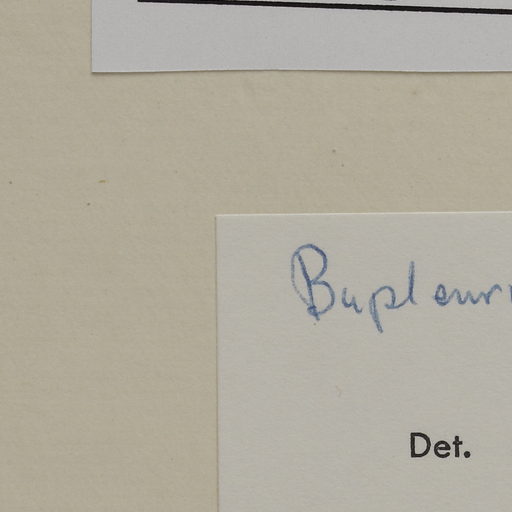 Bupleur
Det.